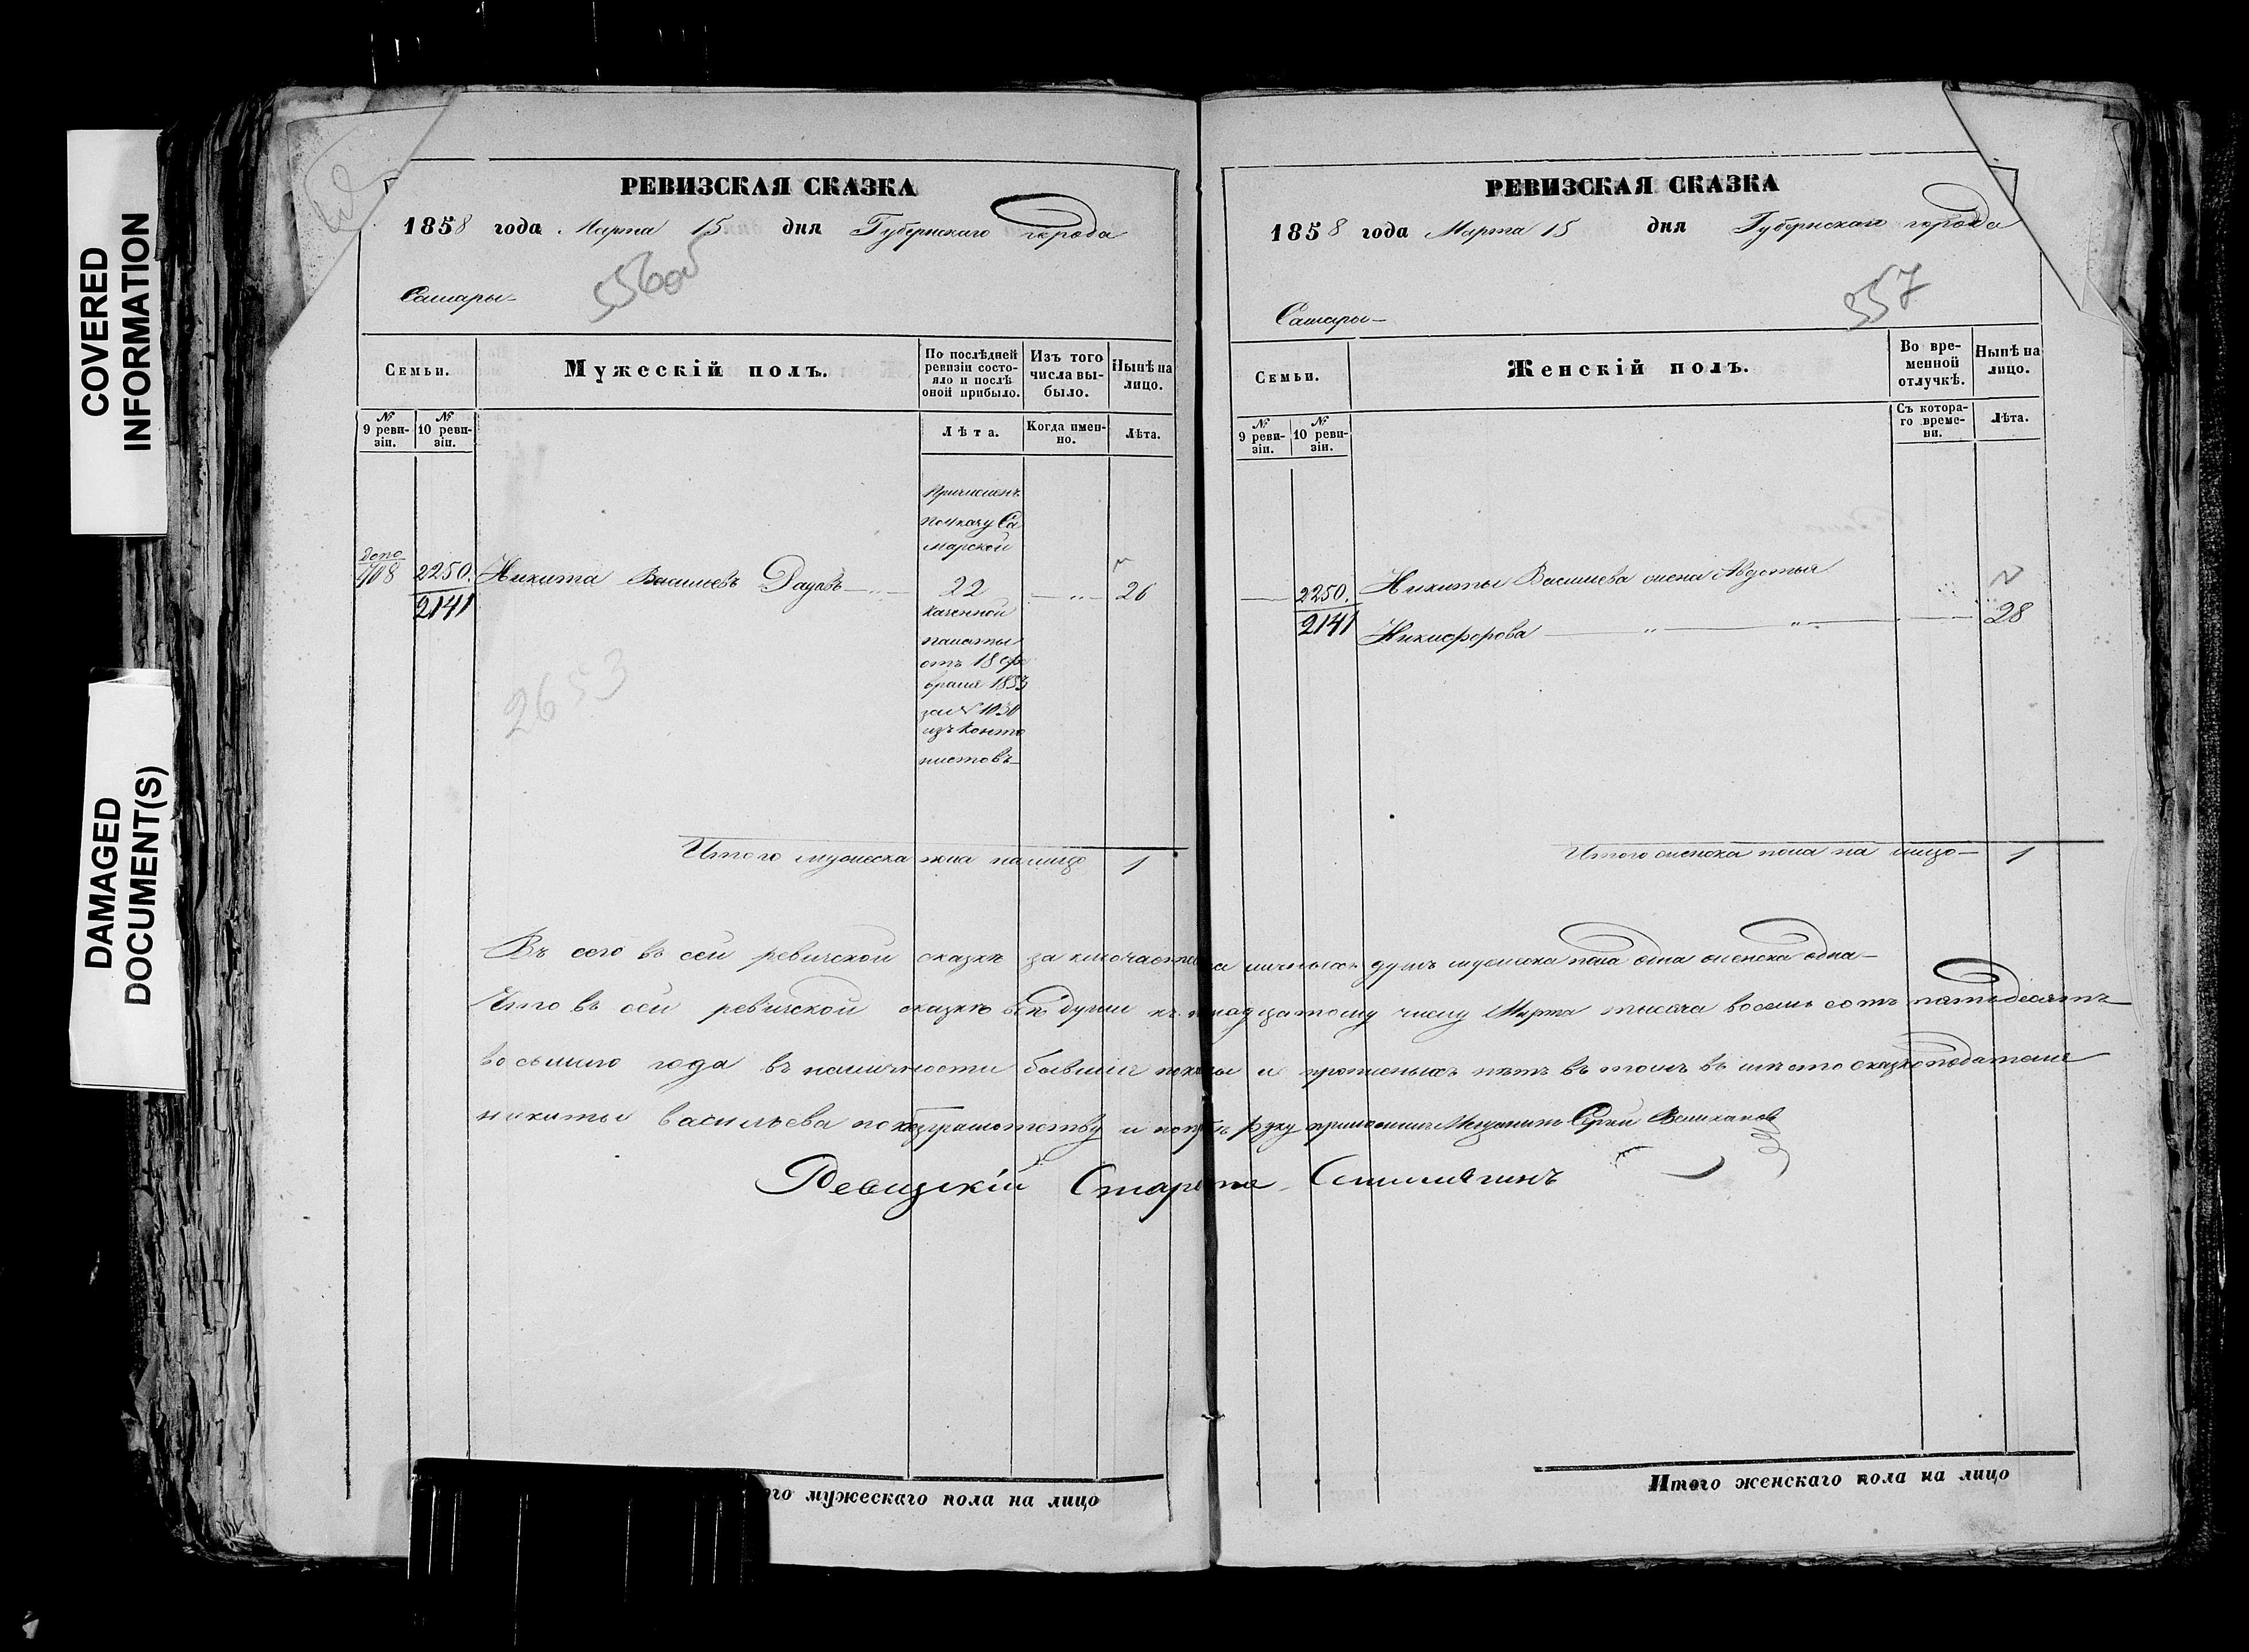 COVERED
INFORMATION
DAMAGED
DOCUMENT(S)
РЕВИЗСКАЯ СКАЗКА
1858 года Марта 15 дня Губернскаго города
Самары
556об
Семьи.
Мужескій полъ.
По послѣдней ревизіи состояло и послѣ оной прибыло.
Изъ того числа выбыло.
Нынѣ на лицо.
№ 9 ревизіи.
№ 10 ревизіи.
Лѣта.
Когда именно.
Лѣта.
Причисленъ
по указу Са
марской
допо
708
2250.
2141
Никита Васильевъ
22
26
казенной
палаты
отъ 18 фе
враля 1853
за № 1030
изъ канто
нистовъ
2653
Итого мужеска пола на лицо 1
РЕВИЗСКАЯ СКАЗКА
1858 года Марта 15 дня Губернскаго города
Самары
557
Семьи.
Женскій полъ.
Во временной отлучкѣ.
Нынѣ на лицо.
№ 9 ревизіи.
№ 10 ревизіи.
Съ котораго времени.
Лѣта.
2250.
2141
Никиты Васильева жена Авдотья
Никифорова
28
Итого женска пола на лицо 1
Всего въ сей ревизской сказкѣ заключается наличныхъ душъ мужска пола одна женска одна
Что въ сей ревизской сказкѣ всѣ души къ пятнадцатому числу Марта тысяча восемь сотъ пятьдесятъ
восьмаго года въ наличности бывшія показаны и прописныхъ нѣтъ въ томъ вмѣсто сказкоподателя
никиты васильева по безграмотству руку приложилъ Мещанинъ
Ревизскій Староста
Итого мужескаго пола на лицо
Итого женскаго пола на лицо